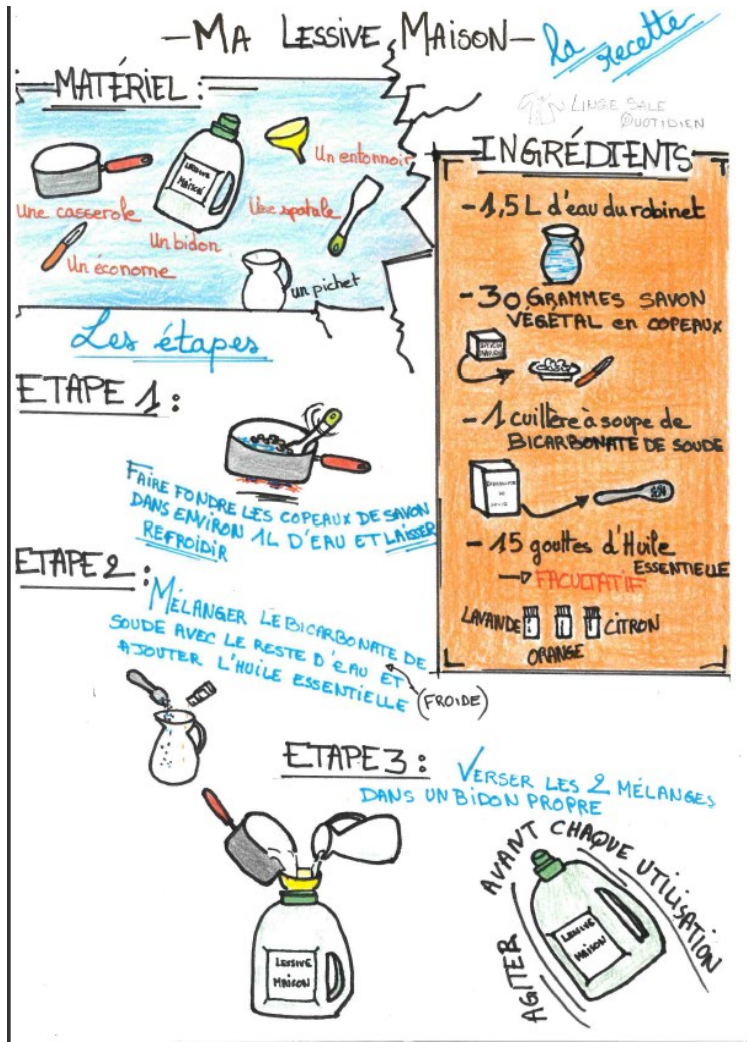 -MA LESSIVE MAISON-
la recette
MATÉRIEL :
Une casserole
LESSIVE
MAISON
Un bidon
Un entonnoir
Une spatule
Un économe
un pichet
LINGE SALE
QUOTIDIEN
INGRÉDIENTS
- 1,5 L d'eau du robinet
- 30 GRAMMES SAVON
VÉGÉTAL en COPEAUX
- 1 cuillère à soupe de
BICARBONATE DE SOUDE
- 15 gouttes d'Huile
ESSENTIELLE
FACULTATIF
LAVANDE
CITRON
ORANGE
Les étapes
ETAPE 1 :
FAIRE FONDRE LES COPEAUX DE SAVON
DANS ENVIRON 1L D'EAU ET LAISSER
REFROIDIR
ETAPE 2 :
MÉLANGER LE BICARBONATE DE
SOUDE AVEC LE RESTE D'EAU ET
AJOUTER L'HUILE ESSENTIELLE
(FROIDE)
ETAPE 3 :
VERSER LES 2 MÉLANGES
DANS UN BIDON PROPRE
LESSIVE
MAISON
AGITER AVANT CHAQUE UTILISATION
LESSIVE
MAISON